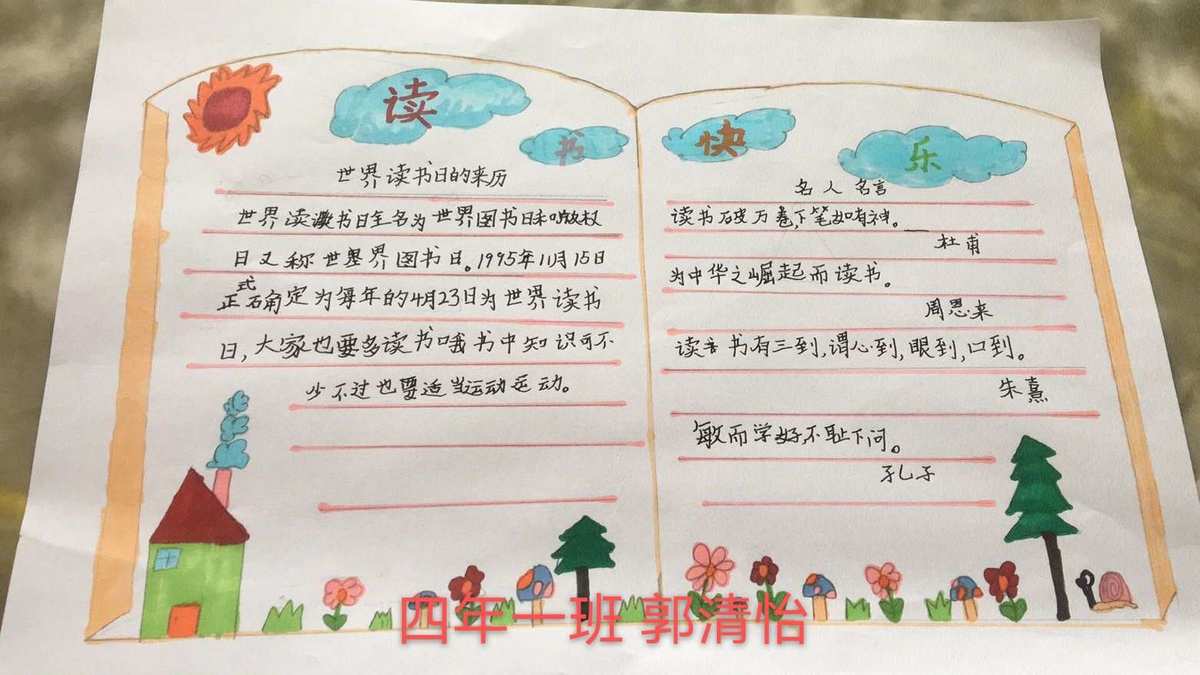 读书快乐
世界读书日的来历
世界读书日全名为世界图书日和版权
日又称世界图书日。1995年11月15日
正式确定为每年的4月23日为世界读书
日,大家也要多读书哦书中知识可不
少不过也要适当运动运动。
名人名言
读书破万卷,下笔如有神。
杜甫
为中华之崛起而读书。
周恩来
读书有三到,谓心到,眼到,口到。
朱熹
敏而学好不耻下问。
孔子
四年一班 郭清怡